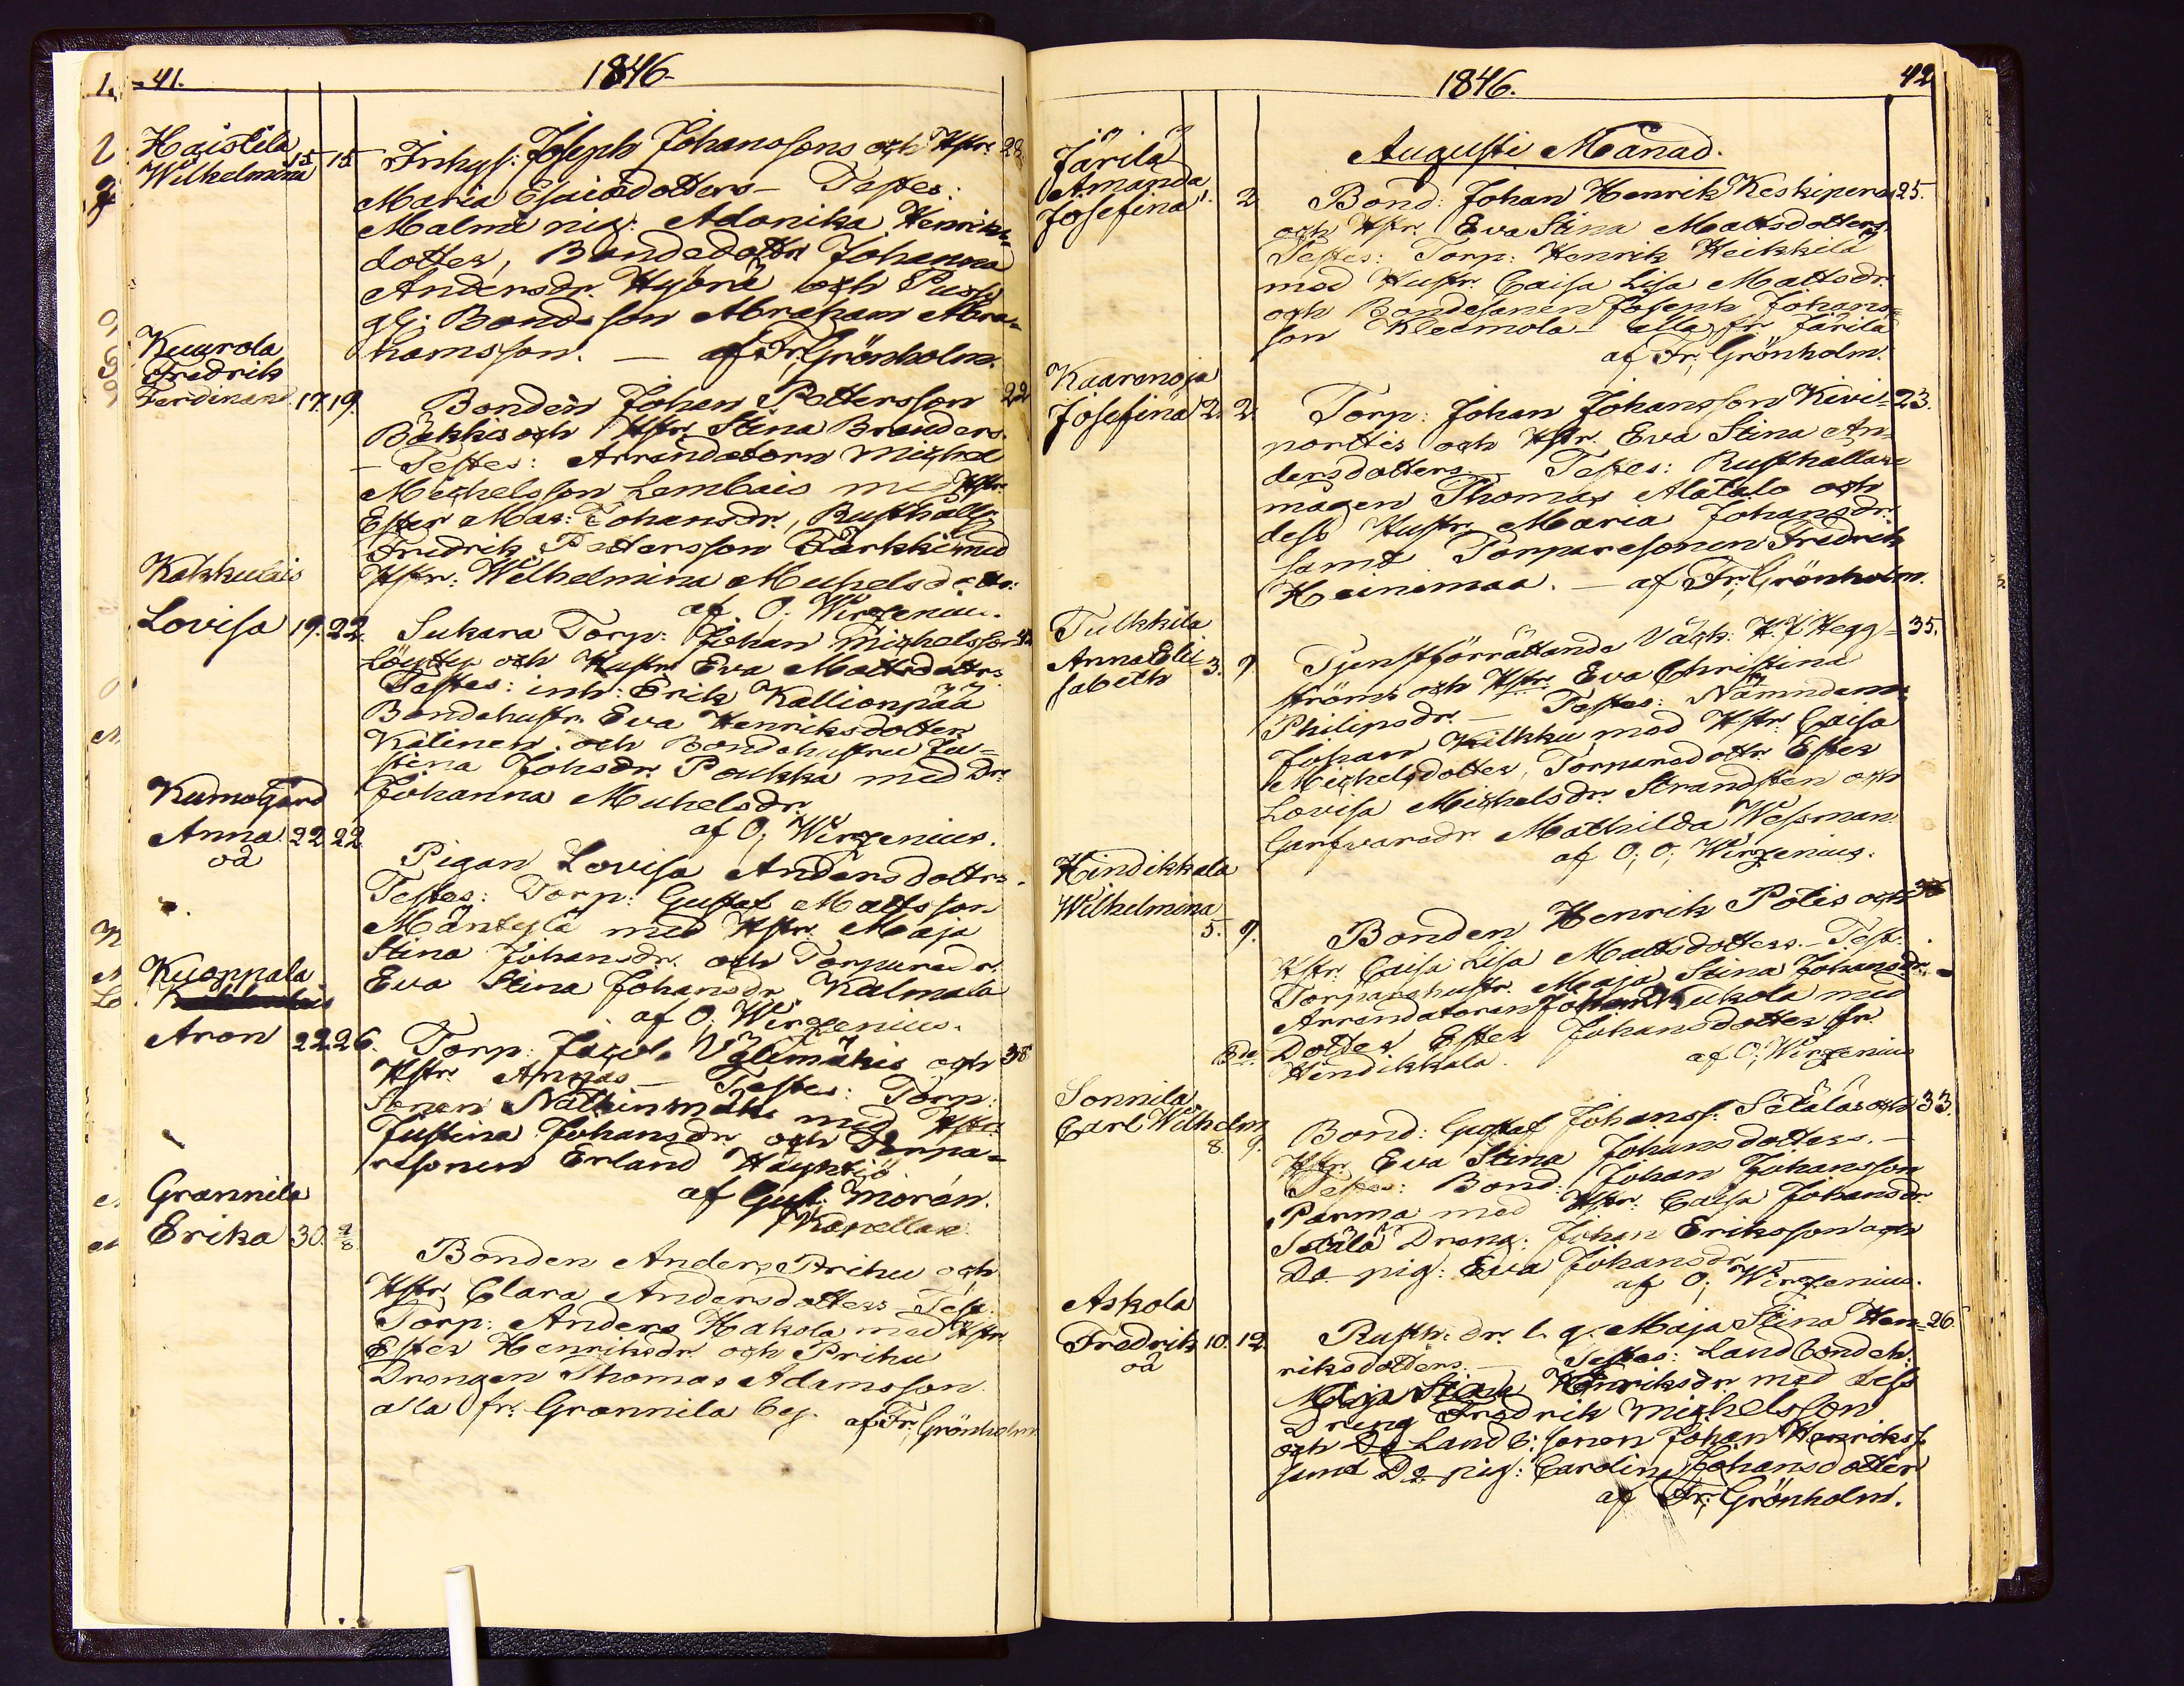 41.
1846.
Haistila
Wilhelmina 15. 15.
Inhys: Joseph Johanssons och Hstr. 28.
Maria Esaiædotters – Testes:
Malmi pig: Adonika Henriks=
dotter, Bondedottr Johanna
Andersdr. Hyörä och
gl: Bondsson Abraham Abra=
hamsson. – af Fr; Grönholm.
Kuurola
Fredrik
Ferdinand. 17. 19.
Bonden Johan Pettersson 22
Bäkkis och Hstr Stina Branders.
– Testes: Arrendatorn Michel
Michelsson Lembais med Hstr
Ester Mar: Johansdr., Rusthållr
Fredrik Pettersson Pärkki med
Hstr: Wilhelmina Michelsdotter.
af O. Wirzenius.
Kakkulais
Lovisa 19. 22.
Sukara Torp: Johan Michelsson
Löyttys och Hustr Eva Mattsdottrs
Testes: inh: Erik Kallionpää
Bondehustr. Eva Henriksdotter
Kälinen och Bondehustru Ju=
stina Johsdr. Poukka med Dr:
Johanna Michelsdr.
af O; Wirzenius.
Kumogård
Anna 22. 22.
oä
Pigan Lovisa Andersdottrs.
Testes: Torp: Gustaf Mattsson
Mäntylä med Hstr. Maja
Stina Johansdr. och Torparedr.
Eva Stina Johansdr Kalmala
af O; Wirzenius.
Kuoppala
Aron 22. 26.
Torp: Jacob Välimäkis och 38
Hstr Annas – Testes: Torp:
Sonen Nälkinmäki med Hstr
Justina Johansdr och Torpa=
resonen Erland Häyhtiö
af Gust: Morén.
Kapellan.
Grannila
Erika 30. 2/8.
Bonden Anders Prihu och
Hstr Clara Andersdotters – Test.
Torp: Anders Hakola med Hstr
Ester Henriksdr. och Prihu
Drängen Thomas Adamsson
alla fr: Grannila by. af Fr; Grönholm
1846.
42
Augusti Månad.
Järilä
Amanda
Josefina 1. 2.
Bond: Johan Henrik Keskiperes 25.
och Hstr. Eva Stina Mattsdotters
Testes: Torp: Henrik Heikkilä
med Hustr. Caisa Lisa Mattsdr.
och Bondesonen Joseph Johans=
son Kleemola – alla fr. Järilä
af Fr; Grönholm.
Kaarenoja
Josefina 2. 2.
Torp: Johan Johansson Kivi= 23.
porttis och Hstr. Eva Stina An=
dersdotters. – Testes: Rusthållare
mågen Thomas Alatalo och
dess Hustr. Maria Johansdr.
samt Torparesonen Fredrik
Heinimaa. – af Fr; Grönholm.
Tulkkila
Anna Eli= 3. 9.
sabeth
Tjenstförrättande Väck: H. J. Hegg= 35.
ströms och Hstr. Eva Christina
Philipsdr. – Testes: Nämndem:
Johan Kilkku med Hstr. Caisa
Michelsdotter, Torparedottr Ester
Lovisa Michelsdr. Strandsten och
Garfvaredr. Mathilda Wessman.
af O; O; Wirzenius.
Hindikkala
Wilhelmina
5. 9.
Bonden Henrik Potis och 36
Hstr. Caisa Lisa Mattsdotters. – Test.
Torparehustr. Maja Stina Johansdr. =
Arrendatoren Johan Kukola med
Dotter Ester Johansdotter fr.
Hindikkala. af O; Wirzenius
Sonnila
Carl Wilhelm
8. 9.
Bond: Gustaf Johanss: Sätäläs och 33.
Hstr Eva Stina Johansdotters. –
Testes: Bond: Johan Johansson
Parma med Hstr: Caisa Johansdr.
Sätälä Dräng: Johan Eriksson och
Do pig: Eva Johansdr.
af O; Wirzenius.
Askola
Fredrik 10. 12.
oä
Rusth: dr. l. q. Maja Stina Hen= 26.
riksdotters. – Testes: Landbondeh:
Maja Stina Henriksdr med dess
Dräng Fredrik Michelsson
och Do Landb: sonen Johan Henrikss.
samt Do pig: Carolina Johansdotter
af Fr; Grönholm.